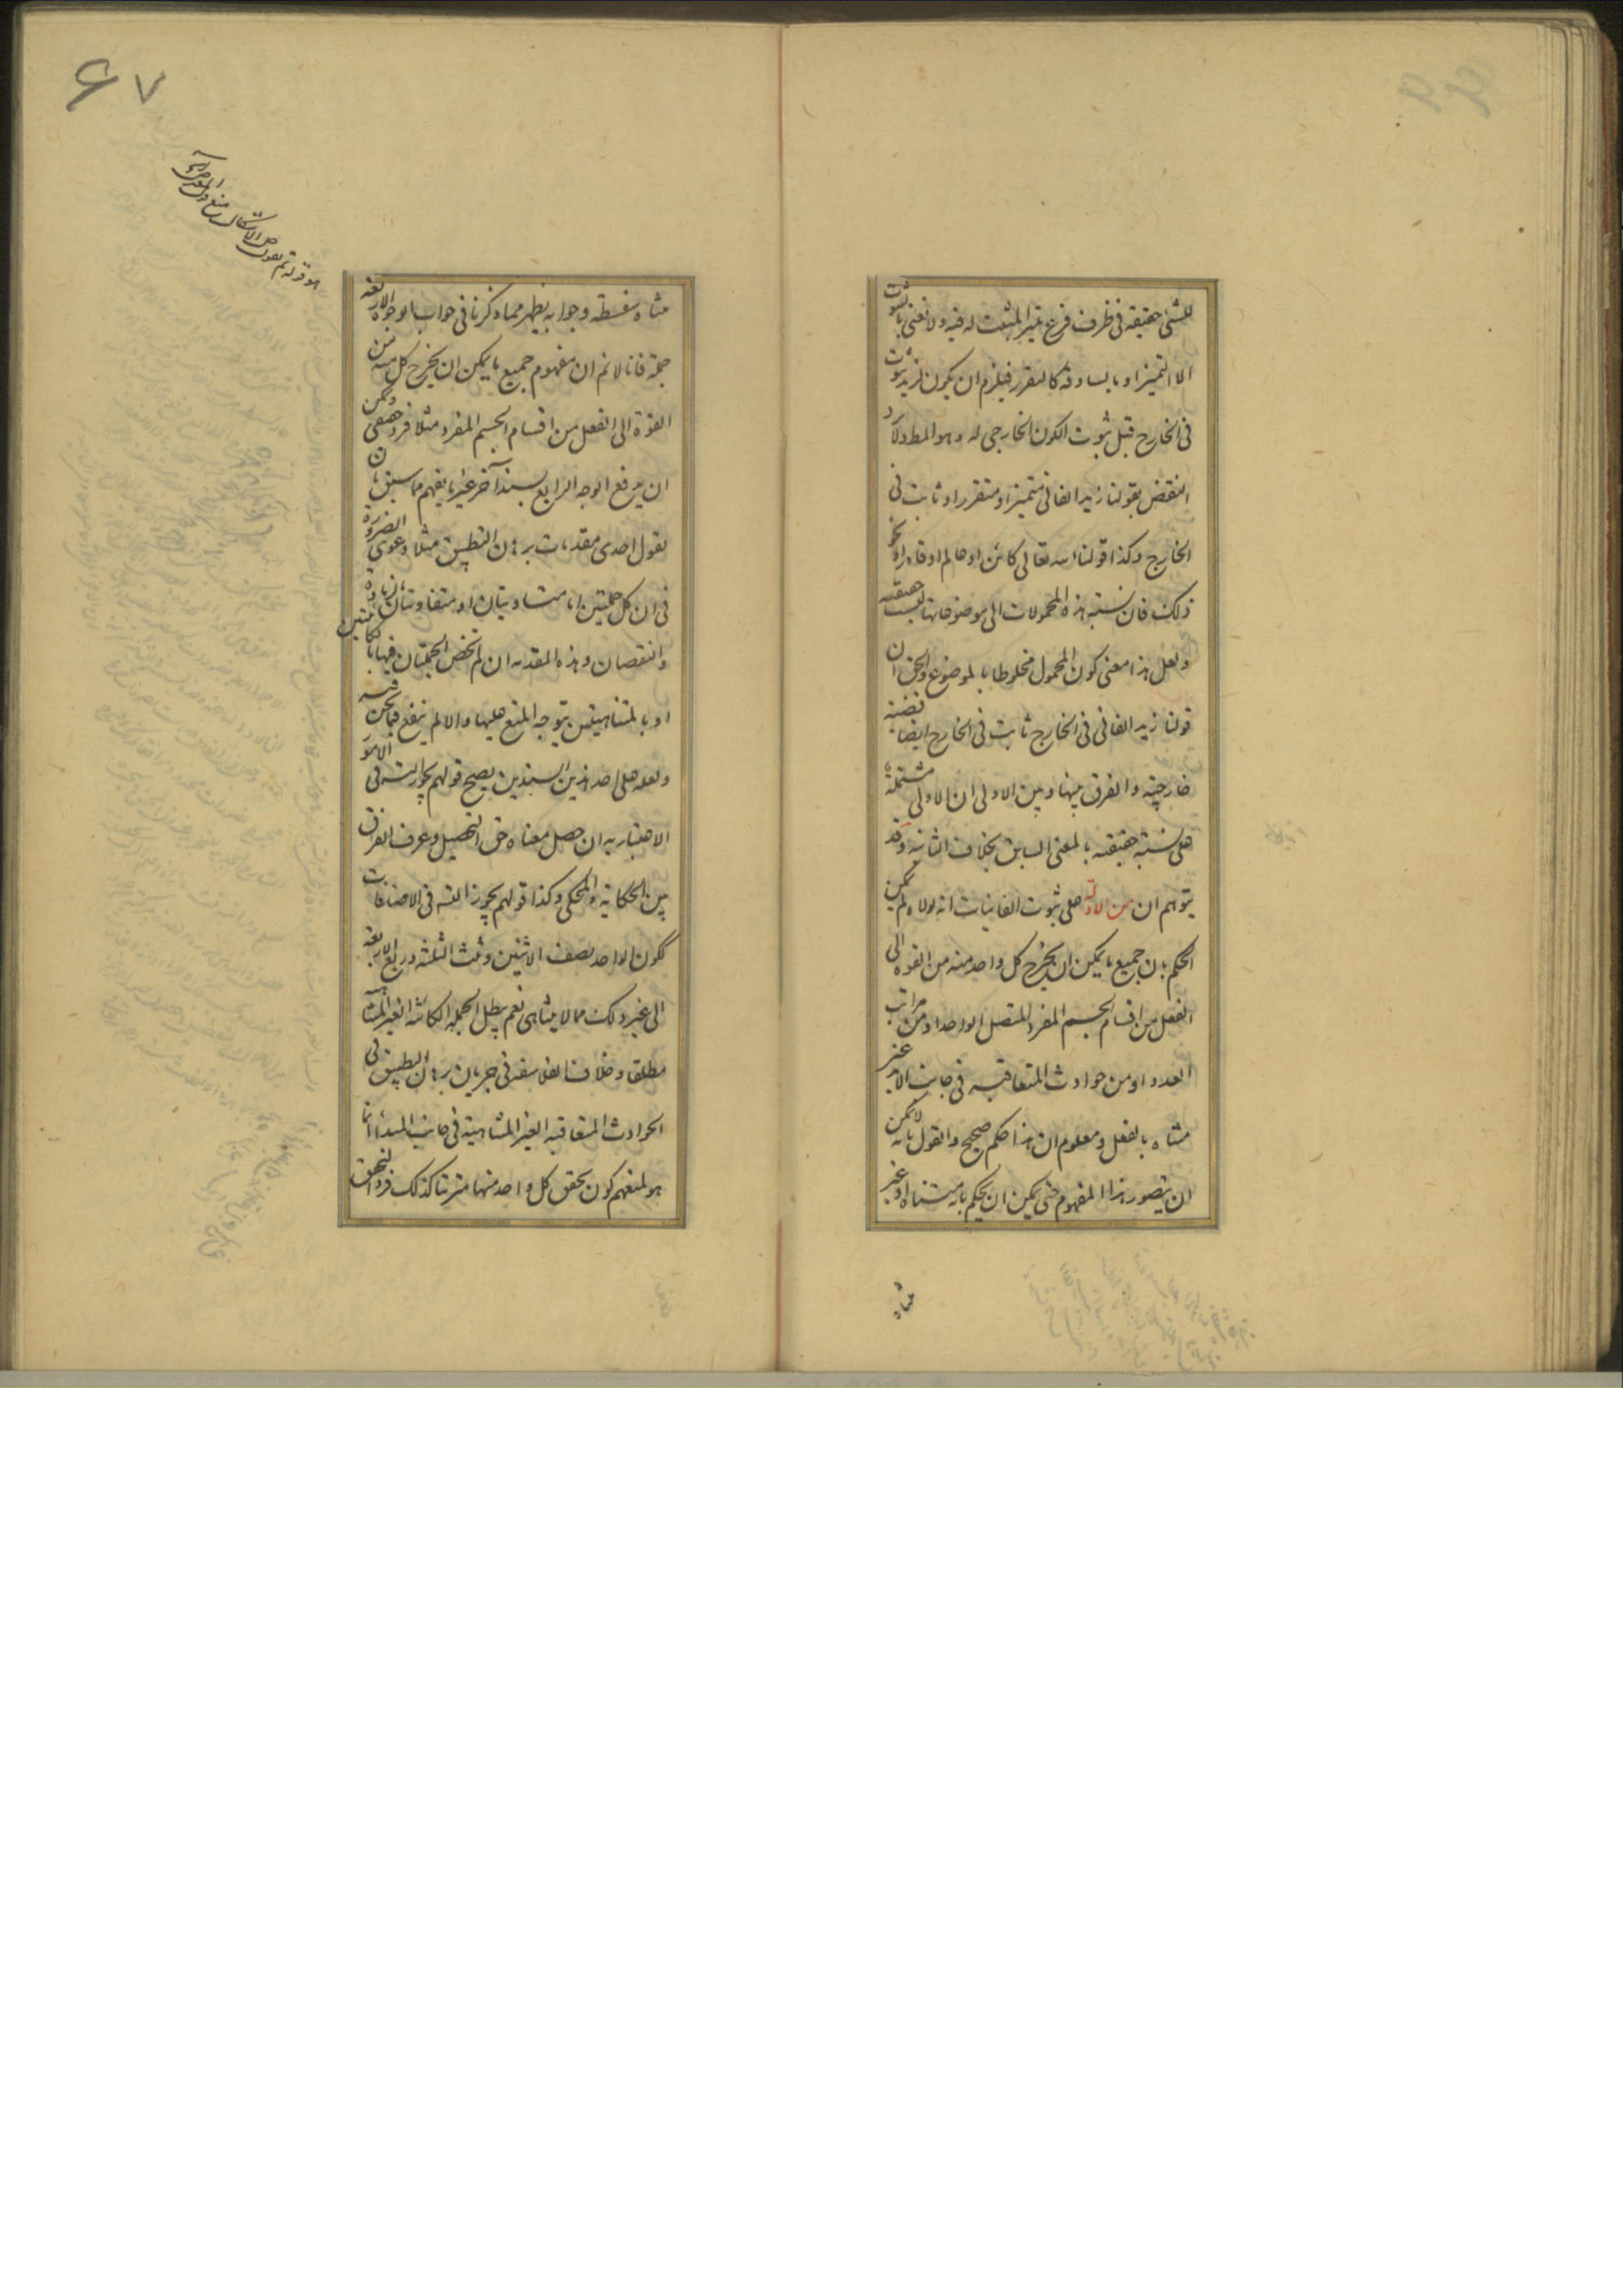 للشئ حقيقة فى ظرف فرع تميز المثبت له فيه ولا نعنى بالثبوت
الا التميز او ما يساوقه كالتقرر فيلزم ان يكون لزيد ثبوت
فى الخارج قبل ثبوت الكون الخارجى له وهو المط ولا يرد
النقض بقولنا زيد الفانى متميز او متقرر او ثابت فى
الخارج وكذا قولنا الله تعالى كائن او عالم او قادر او نحو
ذلك فان نسبة هذه المحمولات الى موضوعاتها ليست حقيقية
ولعل هذا معنى كون المحمول مخلوطا بالموضوع والحق ان
قولنا زيد الفانى فى الخارج ثابت فى الخارج ايضا قضية
خارجية والفرق بينها وبين الاولى ان الاولى مشتملة
على نسبة حقيقية بالمعنى السابق بخلاف الثانية وقد
يتوهم ان من الادلة على ثبوت الفانيات انه لولاه لم يمكن
الحكم بان جميع ما يمكن ان يخرج كل واحد منه من القوة الى
الفعل من اقسام الجسم المفرد المتصل الواحد او من مراتب
العدد او من حوادث المتعاقبه فى جانب الابد غير
متناه بالفعل ومعلوم ان هذا حكم صحيح والقول بانه لا يمكن
ان يتصور هذا المفهوم حتى يمكن ان يحكم بانه متناه او غير
متناه
۶۷
متناه سفسطة وجوابه يظهر مما ذكرنا فى جواب الوجوه الاربعة
جملة فانا لا نم ان مفهوم جميع ما يمكن ان يخرج كل منه من
القوة الى الفعل من اقسام الجسم المفرد مثلا فرد حقيقى ويمكن
ان يدفع الوجه الرابع بسند آخر غير ما يفهم مما سبق بان
يقول احدى مقدمات برهان التطبيق مثلا دعوى الضرورة
فى ان كل جملتين اما متساويتان او متفاوتتان بالزيادة
والنقصان وهذه المقدمه ان لم تخص الجملتان فيها بالكائنتين
او بالمتناهيتين يتوجه المنع عليها والا لم ينفع فيما نحن فيه
ولعله على احد هذين السندين يصح قولهم يجوز التسه فى الامور
الاعتبارية ان حصل معناه حق التحصيل وعرف الفرق
بين الحكاية والمحكى وكذا قولهم يجوز التسه فى الاضافات
ككون الواحد نصف الاثنين وثلث الثلثة وربع الاربعة
الى غير ذلك مما لا يتناهى نعم يبطل الجملة الكائنة الغير المتناهية
مطلقا وخلاف الفلاسفه فى جريان برهان التطبيق فى
الحوادث المتعاقبه الغير المتناهية فى جانب المبدأ انما
هو لمنعهم كون تحقق كل واحد منها مترتبا كذلك فرد التحقق